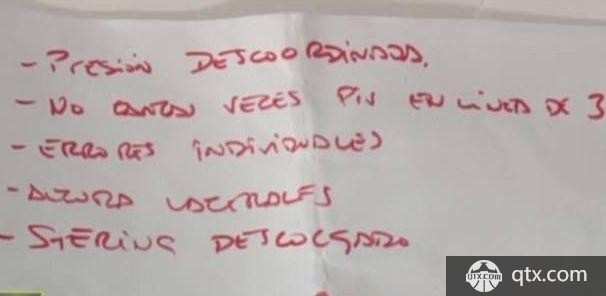 - Presión DESCOORDINADA.
- No VECES PIV EN LINEA DE 3
- ERRORES INDIVIDUALES
- ALTURA LATERALES
- STERLING DESCOLGADO
QTX.COM
qtx.com